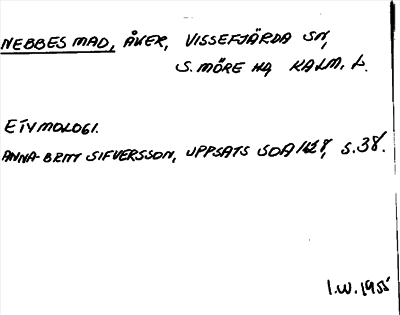 NEBBES MAD, ÅKER, VISSEFJÄRDA SN,
S. MÖRE HD KALM. L.
ETYMOLOGI.
ANNA-BRITT SIFVERSSON, UPPSATS SOA 1428, S. 38.
I.W. 1955